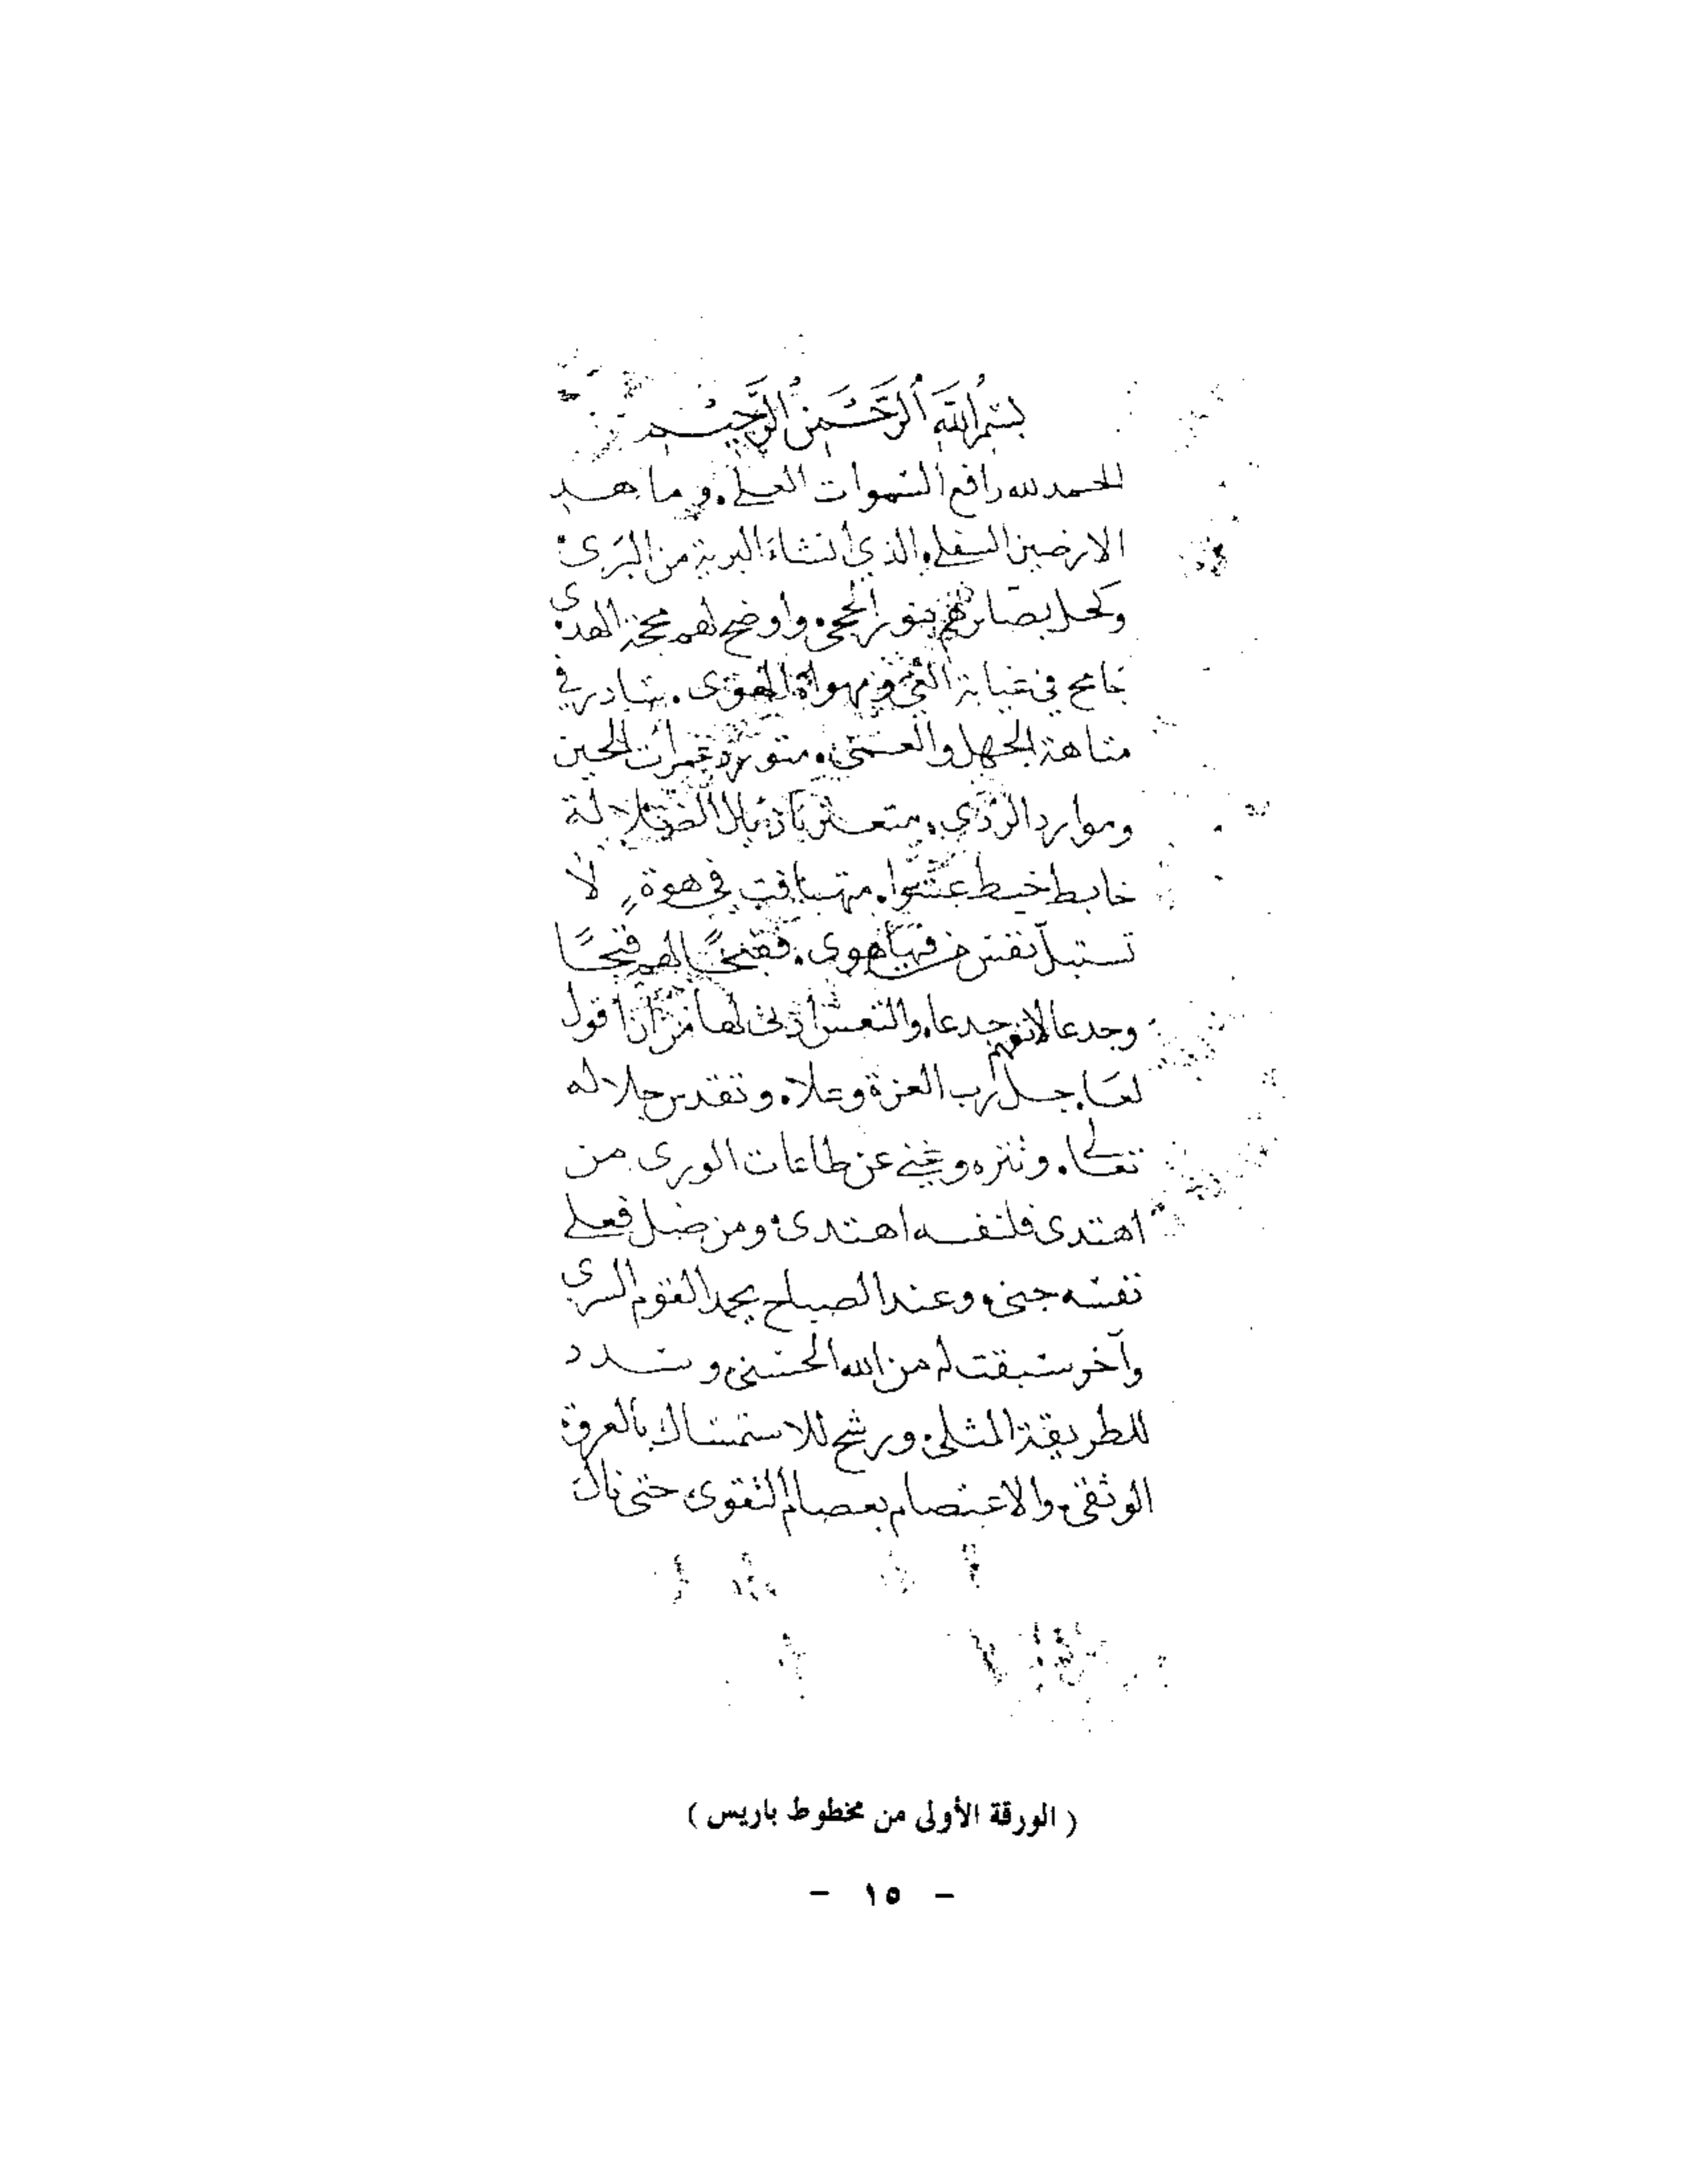 بِسْمِ اللَّهِ الرَّحْمَنِ الرَّحِيمِ
الحمد لله رافع السموات العلى . وماهد
الارضين السفلى . الذي أنشاء البرية من البَرَى .
وكحل بصائرهم بنور الحجى . وأوضح لهم محجة الهدى
جامح في غيابة الغي ومهواة الهوى . سادر في
متاهة الجهل والعمى . متورد غمرات الحين
وموارد الردي . متعثر باذيال الضلالة
خابط خبط عشوا . متهافت في هوةٍ لا
تستبلّ نفس من فيها هوى . فقبحًا لهم قبحًا
وجدعا لانفهم جدعا . والتعس أدنى لها من ان اقول
لعَا . جل رب العزة وعلا . وتقدس جلاله
تعالى . وتنزه وغني عن طاعات الورى . من
اهتدى فلنفسه اهتدى . ومن ضل فعلى
نفسه جنى . وعند الصباح يحمد القوم السري
وآخر سبقت له من الله الحسنى . وسدد
للطريقة المثلى . ورشح للاستمساك بالعروة
الوثقى . والاعتصام بعصام التقوى حتى ناك
( الورقة الأولى من مخطوط باريس )
– ١٥ –